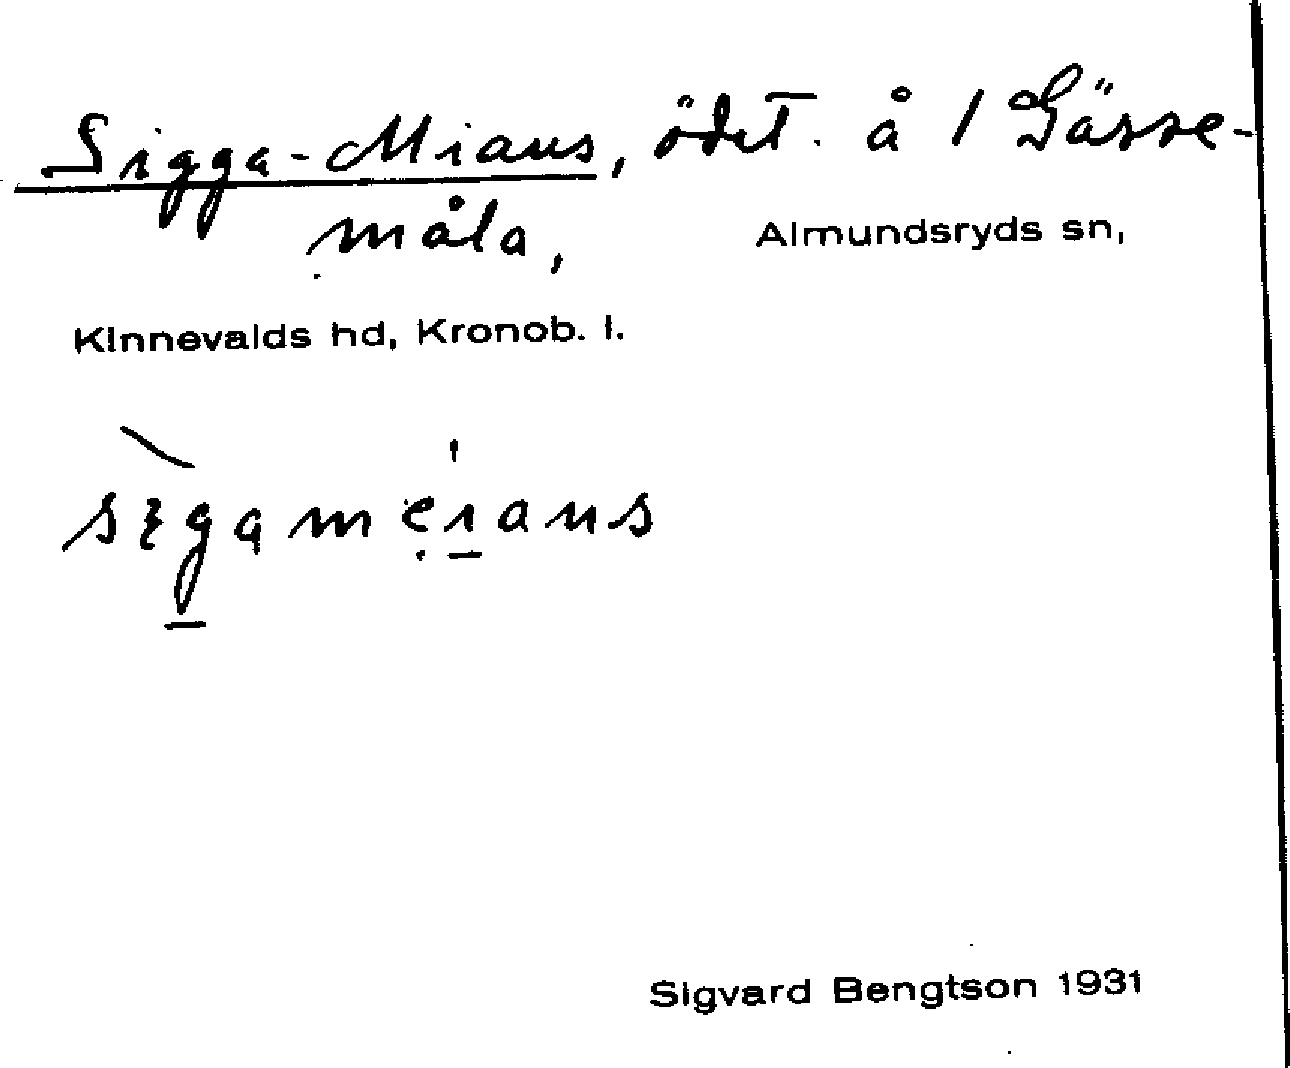 Sigga-Mians, ödet. å 1 Gässe-
måla, Almundsryds sn,
Kinnevalds hd, Kronob. l.
Sigvard Bengtson 1931